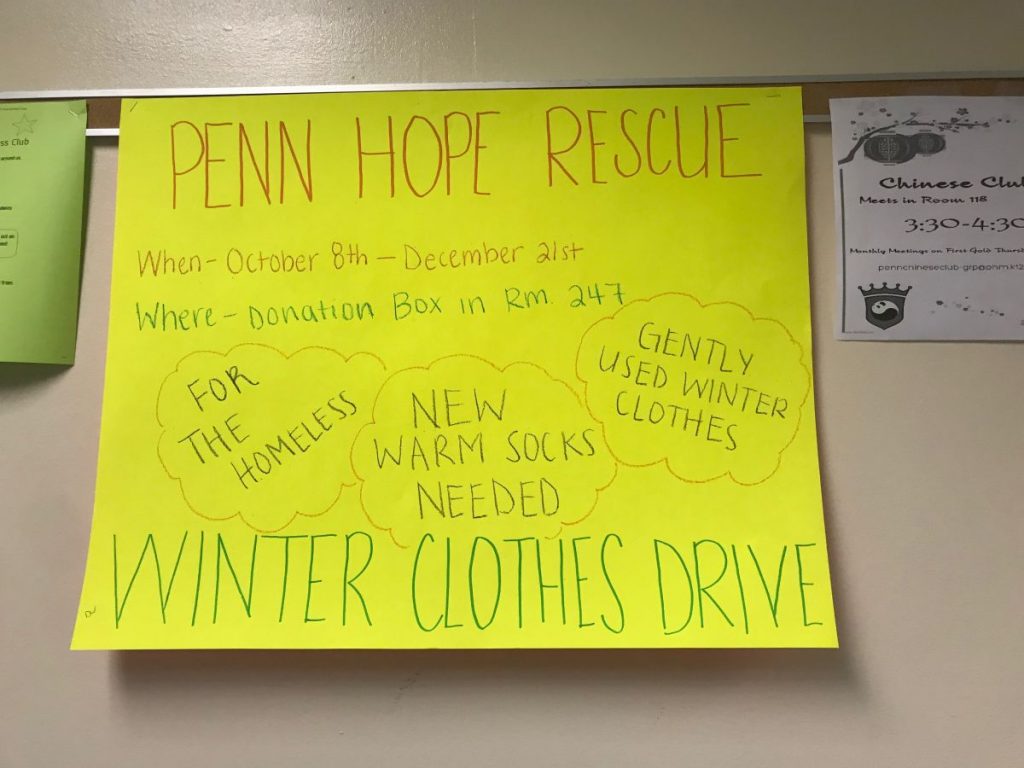 PENN HOPE RESCUE
When - October 8th - December 21st
Where - Donation Box in Rm. 247
FOR
THE
HOMELESS
NEW
WARM SOCKS
NEEDED
GENTLY
USED WINTER
CLOTHES
WINTER CLOTHES DRIVE
ss Club
around us.
Chinese Clu
Meets in Room 118
3:30-4:30
Monthly Meetings on First Gold Thursd
pennchineseclub-grp@phm.k12